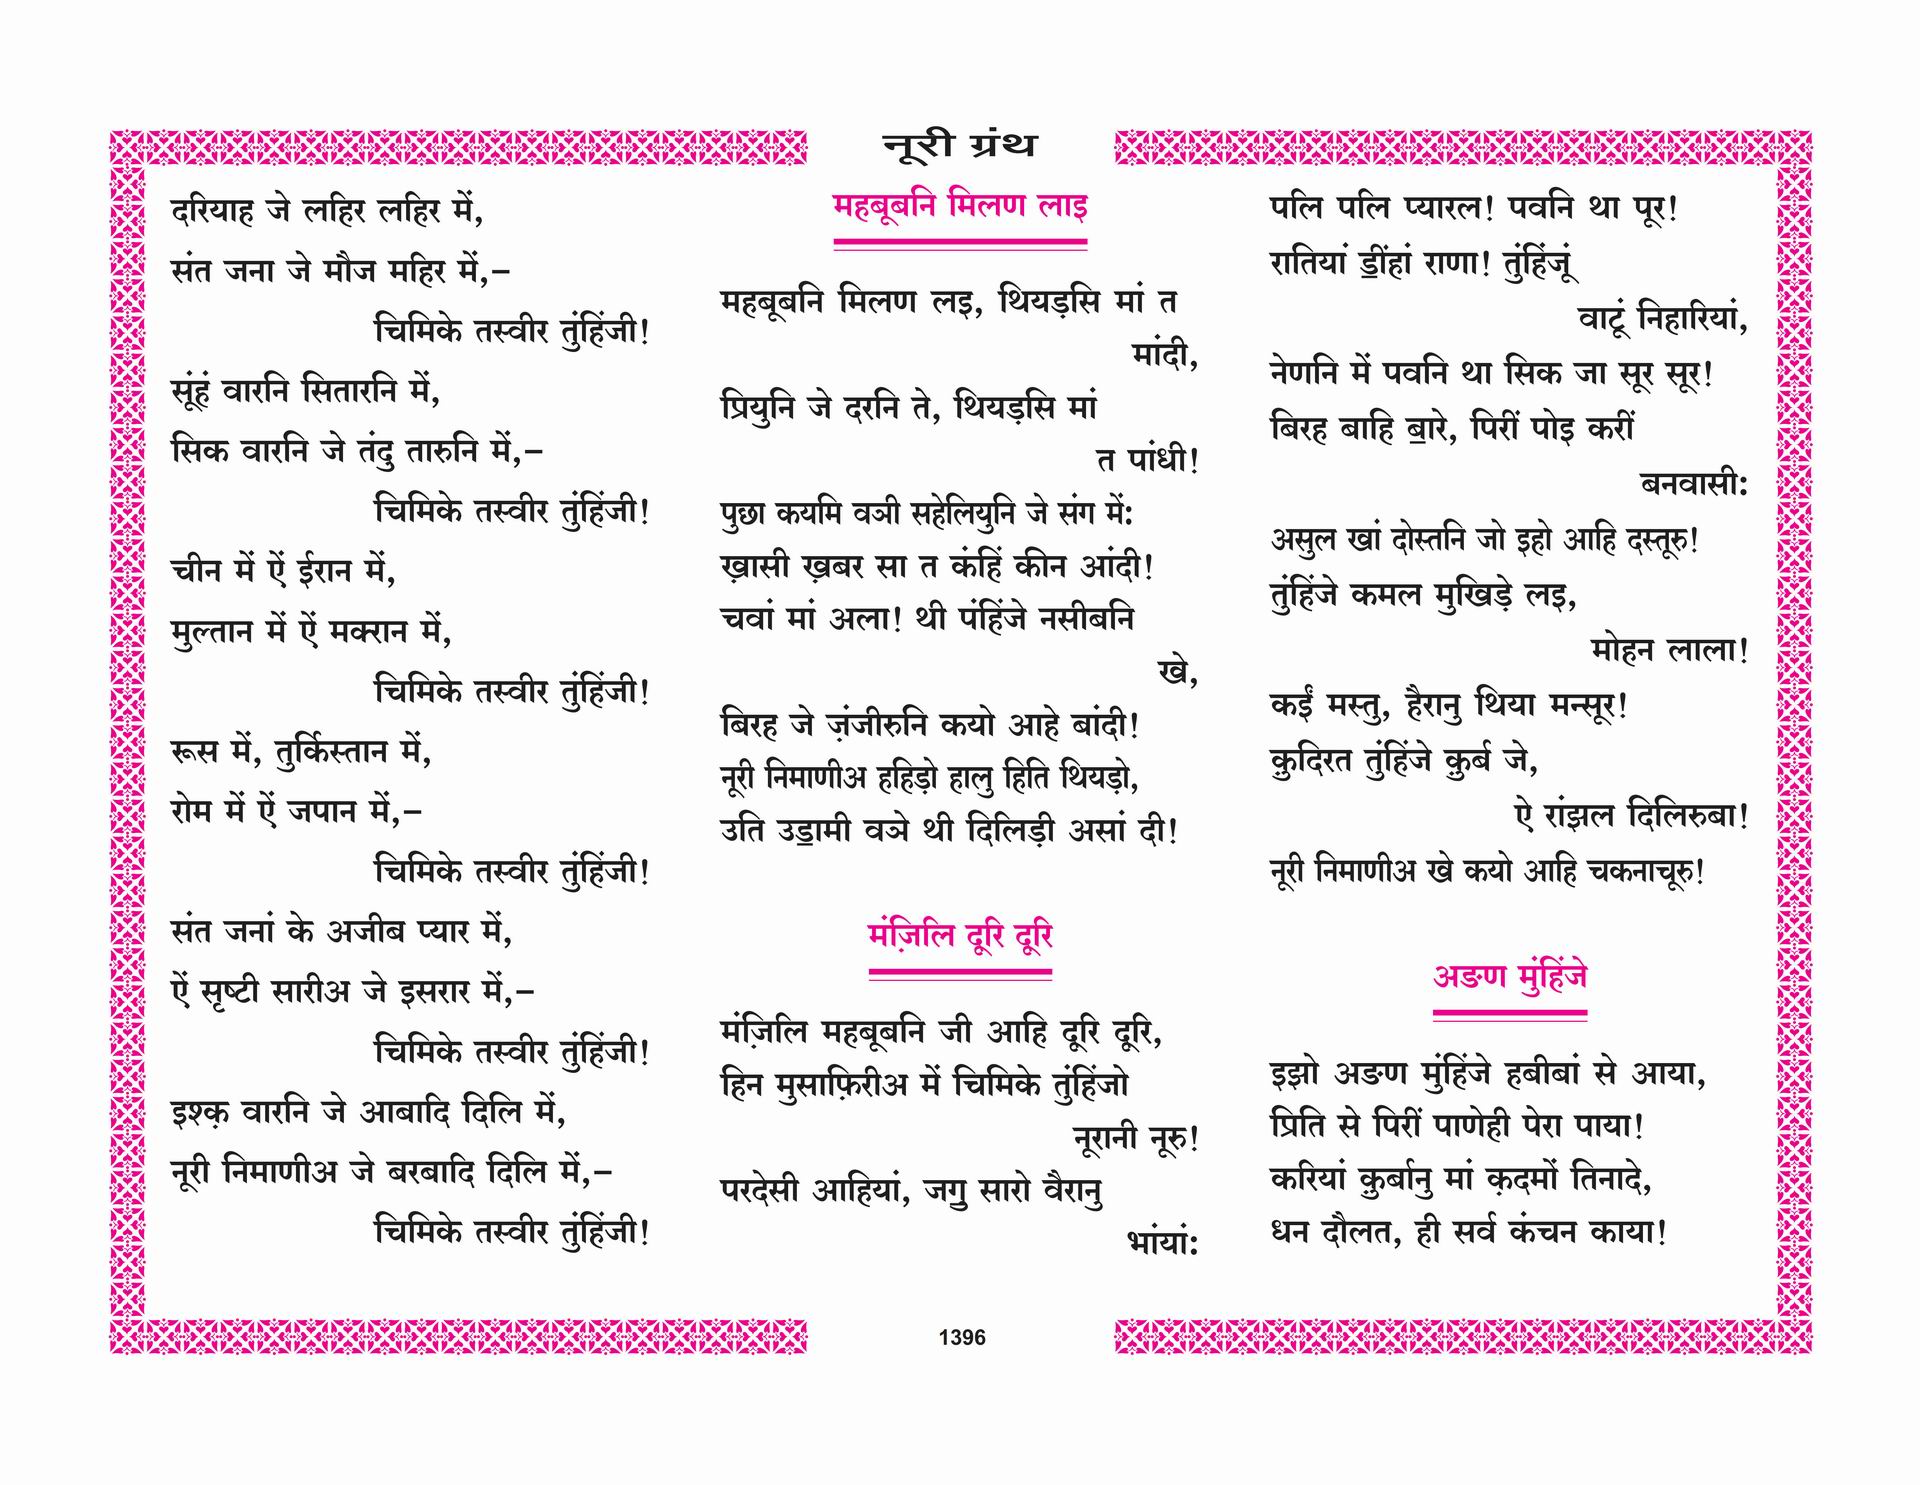 नूरी ग्रंथ
दरियाह जे लहिर लहिर में,
संत जना जे मौज महिर में,–
चिमिके तस्वीर तुंहिंजी!
सूंहं वारनि सितारनि में,
सिक वारनि जे तंदु तारुनि में,–
चिमिके तस्वीर तुंहिंजी!
चीन में ऐं ईरान में,
मुल्तान में ऐं मक्रान में,
चिमिके तस्वीर तुंहिंजी!
रूस में, तुर्किस्तान में,
रोम में ऐं जपान में,–
चिमिके तस्वीर तुंहिंजी!
संत जनां के अजीब प्यार में,
ऐं सृष्टी सारीअ जे इसरार में,–
चिमिके तस्वीर तुंहिंजी!
इश्क़ वारनि जे आबादि दिलि में,
नूरी निमाणीअ जे बरबादि दिलि में,–
चिमिके तस्वीर तुंहिंजी!
महबूबनि मिलण लाइ
महबूबनि मिलण लइ, थियड़सि मां त
मांदी,
प्रियुनि जे दरनि ते, थियड़सि मां
त पांधी!
पुछा कयमि वञी सहेलियुनि जे संग में:
ख़ासी ख़बर सा त कंहिं कीन आंदी!
चवां मां अला! थी पंहिंजे नसीबनि
खे,
बिरह जे ज़ंजीरुनि कयो आहे बांदी!
नूरी निमाणीअ हहिड़ो हालु हिति थियड़ो,
उति उॾामी वञे थी दिलिड़ी असां दी!
मंज़िलि दूरि दूरि
मंज़िलि महबूबनि जी आहि दूरि दूरि,
हिन मुसाफ़िरीअ में चिमिके तुंहिंजो
नूरानी नूरु!
परदेसी आहियां, जॻु सारो वैरानु
भांयां:
पलि पलि प्यारल! पवनि था पूर!
रातियां ॾींहां राणा! तुंहिंजूं
वाटूं निहारियां,
नेणनि में पवनि था सिक जा सूर सूर!
बिरह बाहि ॿारे, पिरीं पोइ करीं
बनवासी:
असुल खां दोस्तनि जो इहो आहि दस्तूरु!
तुंहिंजे कमल मुखिड़े लइ,
मोहन लाला!
कईं मस्तु, हैरानु थिया मन्सूर!
क़ुदिरत तुंहिंजे क़ुर्ब जे,
ऐ रांझल दिलिरुबा!
नूरी निमाणीअ खे कयो आहि चकनाचूरु!
अङण मुंहिंजे
इझो अङण मुंहिंजे हबीबां से आया,
प्रिति से पिरीं पाणेही पेरा पाया!
करियां क़ुर्बानु मां क़दमों तिनादे,
धन दौलत, ही सर्व कंचन काया!
1396